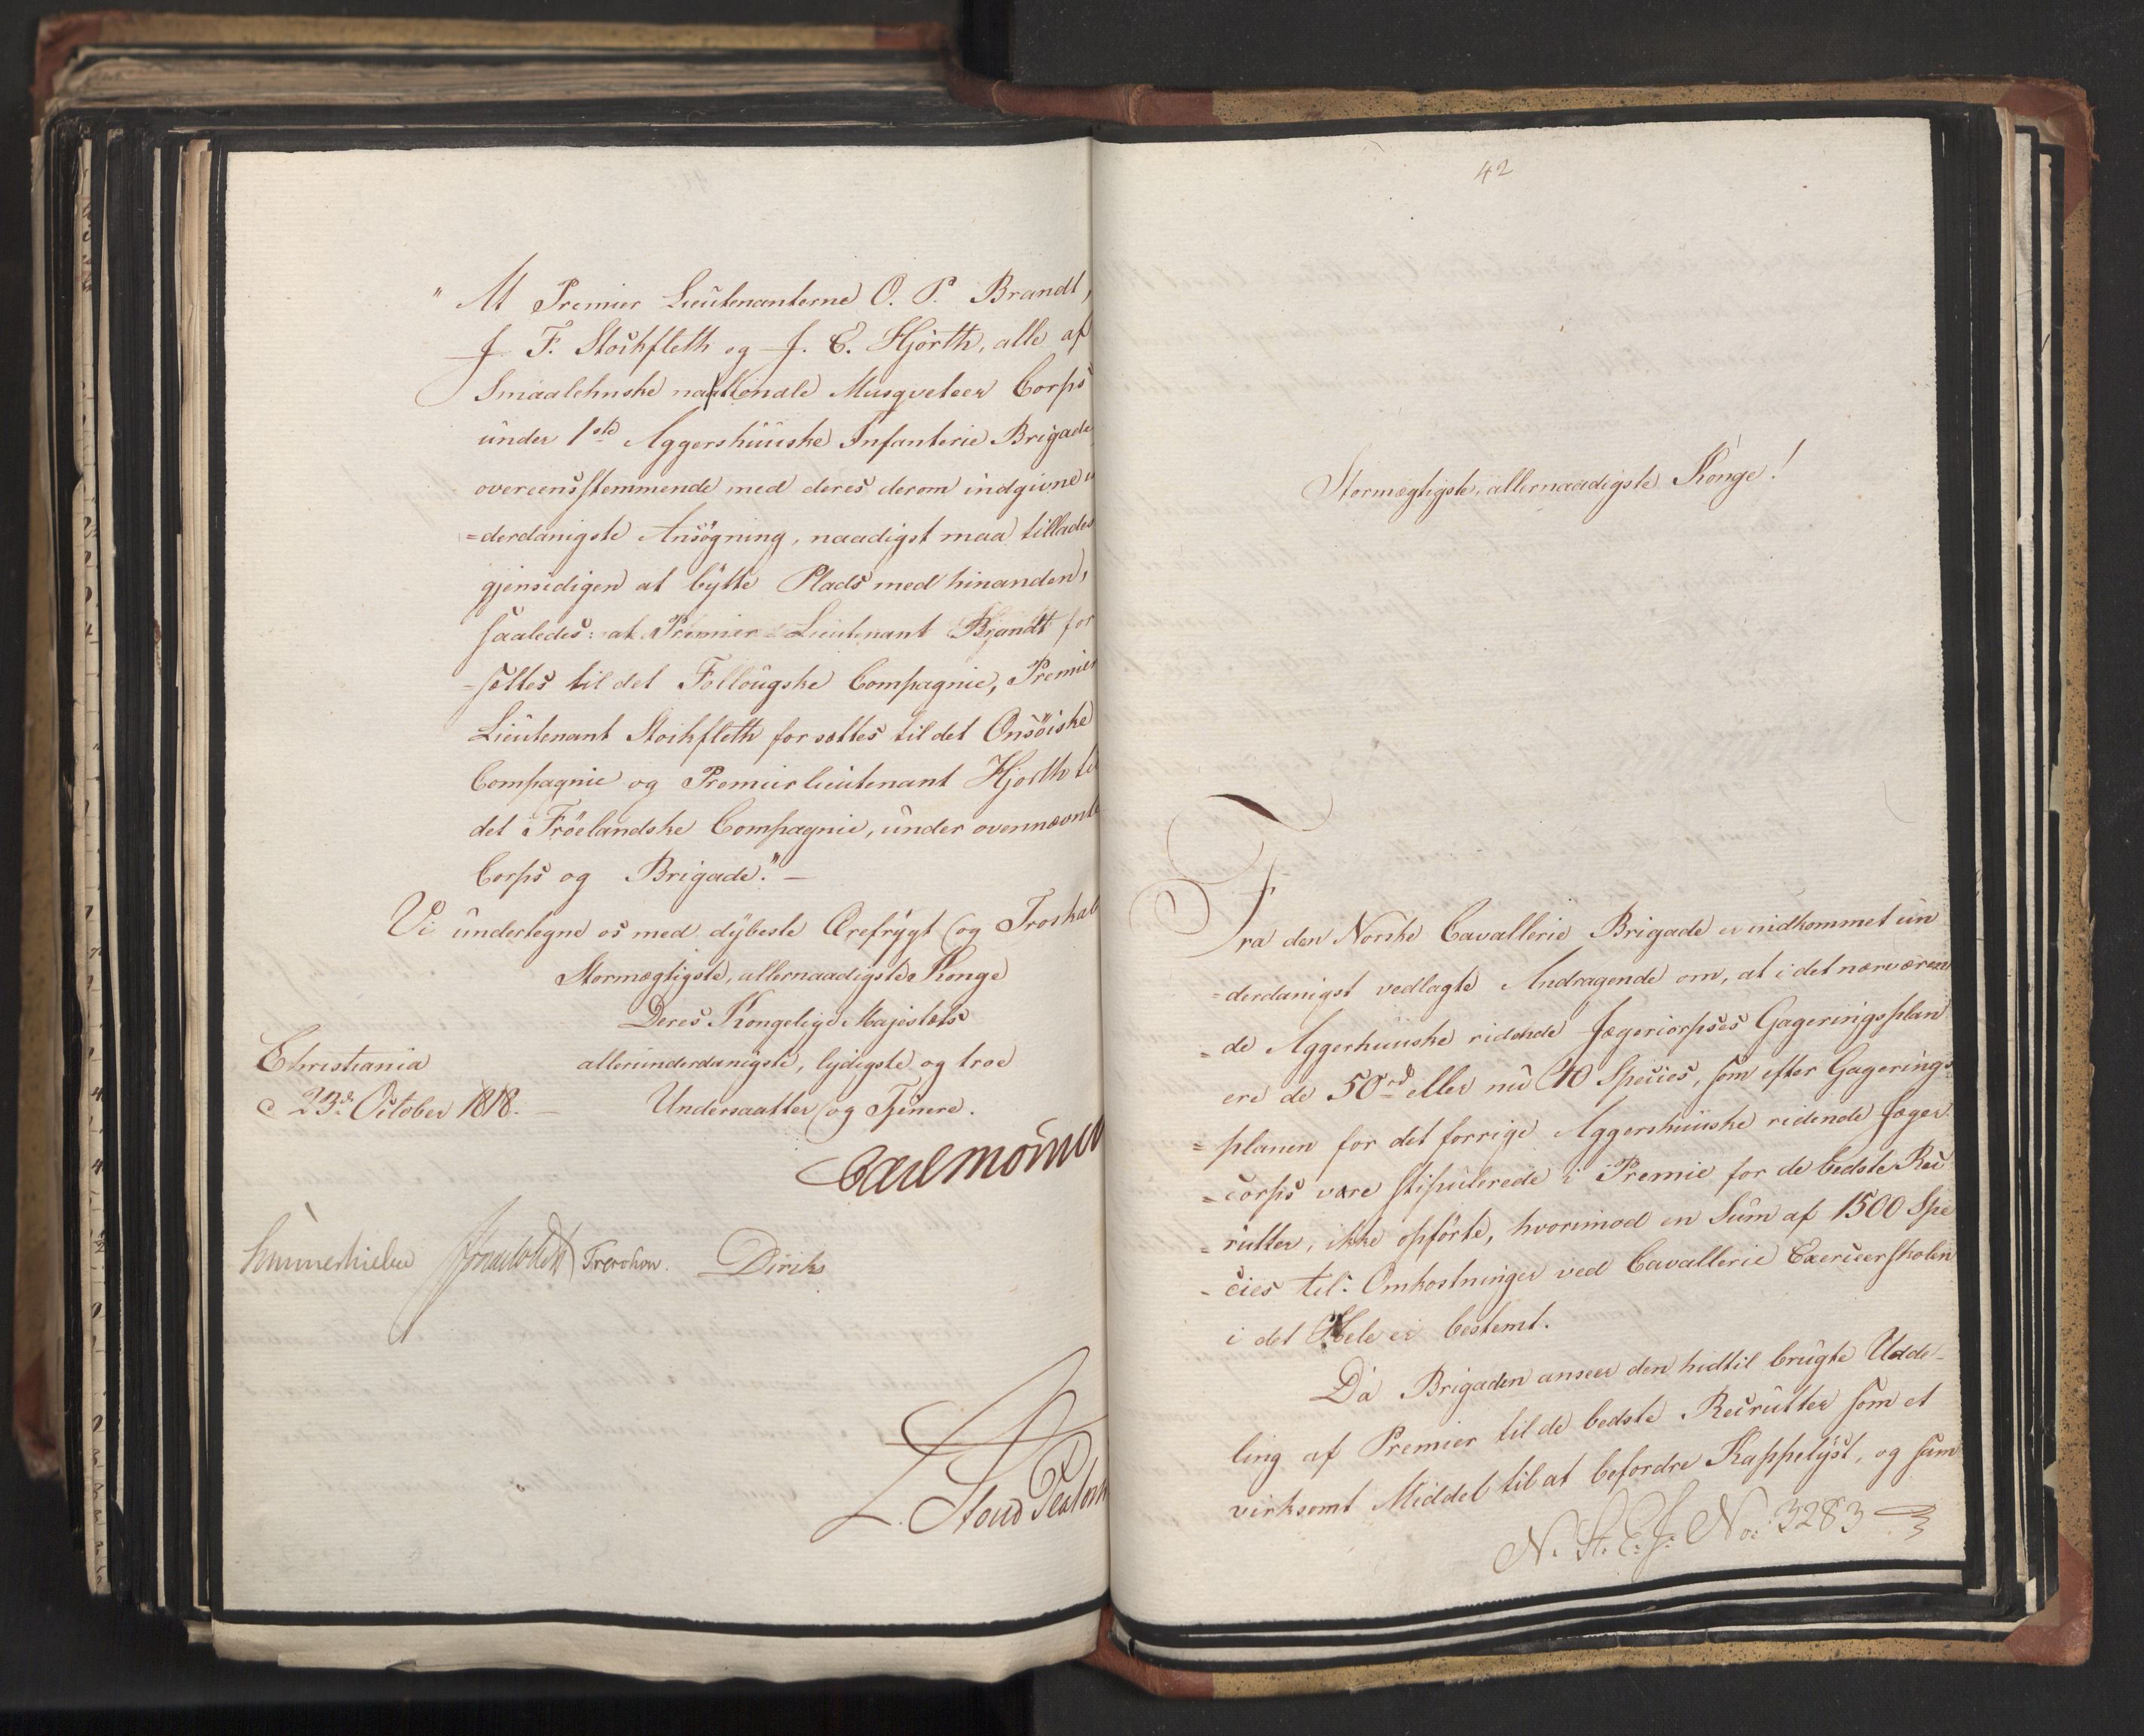 "At Premier Lieutenanterne O. P. Brandt,
J. F. Stockfleth og J. C. Hjorth, alle af
Smaalehnske nationale Musqveteer Corps
under 1ste Aggershuuske Infanterie Brigade
overeensstemmende med deres derom indgivne u
=derdanigste Ansøgning, naadigst maa tillades
gjensidigen at bytte Plads med hinanden,
saaledes: at Premier Lieutenant Brandt for
=sættes til det Follougske Compagnie, Premier
Lieutenant Stockfleth forsættes til det Onsøiske
Compagnie og Premierlieutenant Hjorth til
det Trøelandske Compagnie, under ovennævnte
Corps og Brigade." —
Vi undertegne os med dybeste Ærefrygt og Troskab
Stormægtigste, allernaadigste Konge
Deres Kongelige Majestæts
Christiania
allerunderdanigste, lydigste og troe
d 23de October 1818. —
Undersaatter og Tjenere.
Carl Mörner
Sommerhielm
Treschow.
Diriks
L. Stoud Platou
42
Stormægtigste, allernaadigste Konge!
Fra den Norske Cavallerie Brigade er indkommet un
=derdanigst vedlagte Andragende om, at i det nærværen
=de Aggerhuuske ridende Jægercorpses Gageringsplan
ere de 50rd eller nu 40 Species, som efter Gagerings
=planen for det forrige Aggershuuske ridende Jæger
=corps vare stipulerede i Premie for de bedste Rec
=rutter, ikke opførte, hvorimod en Sum af 1500 Spe
-cies til Omkostninger ved Cavallerie Exerceerskolen
i det Hele er bestemt.
Da Brigaden anseer den hidtil brugte Udde-
ling af Premier til de bedste Recrutter som et
virksomt Middel til at befordre Kappelyst, og som
N. St. E. J. No: 3283